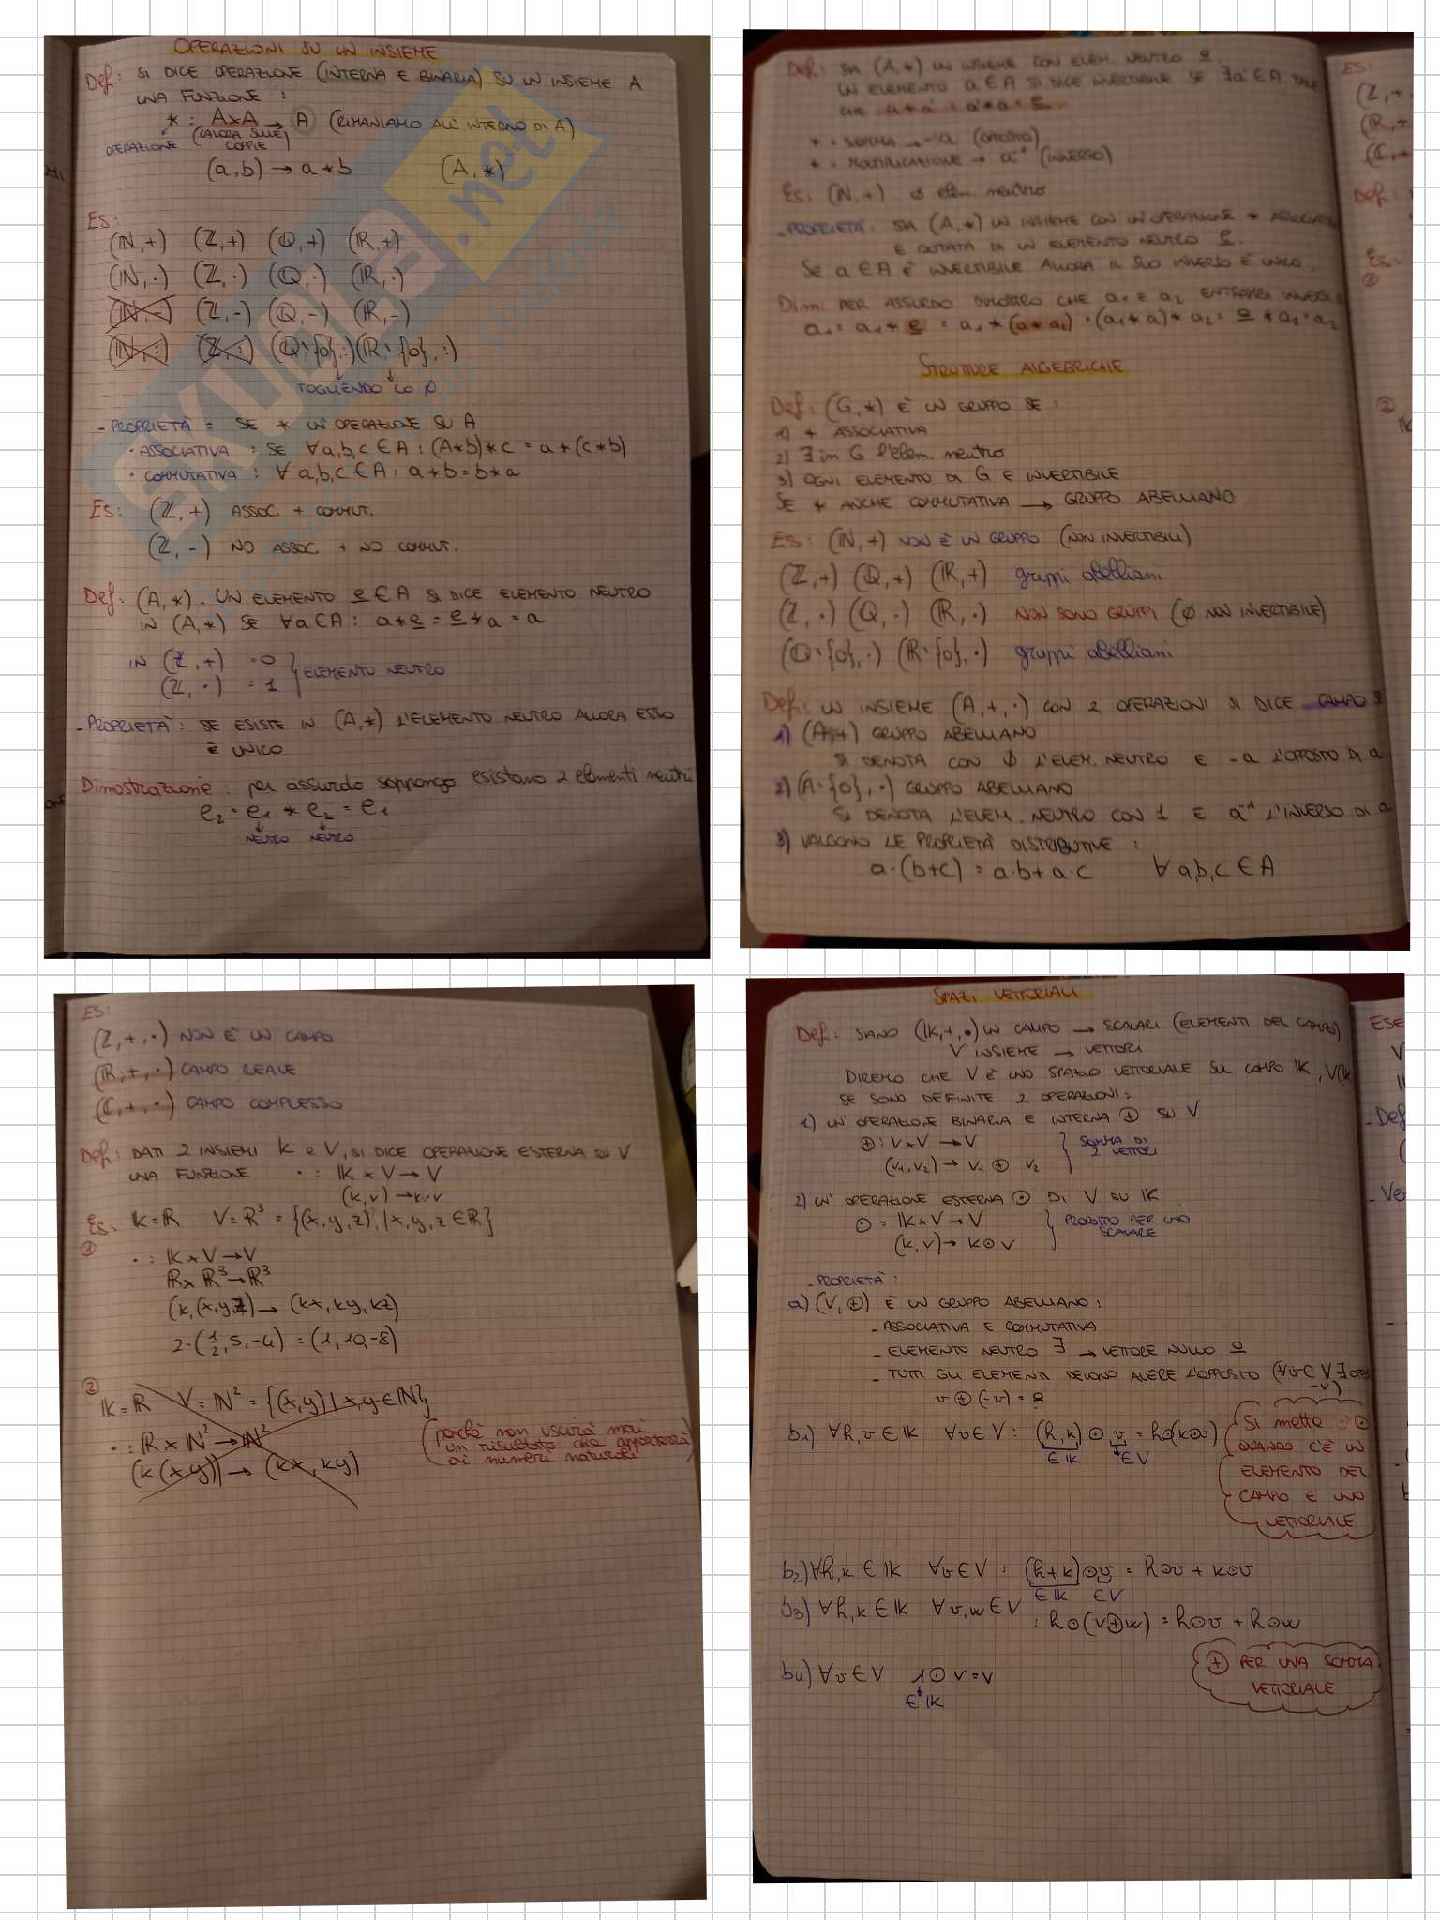 OPERAZIONI SU UN INSIEME
Def: SI DICE OPERAZIONE (INTERNA E BINARIA) SU UN INSIEME A
UNA FUNZIONE :
* : A×A → A (RIMANIAMO ALL'INTERNO DI A)
OPERAZIONE (LAVORA SULLE COPPIE)
(a,b) → a*b (A,*)
ES:
(ℕ,+) (ℤ,+) (ℚ,+) (ℝ,+)
(ℕ,·) (ℤ,·) (ℚ,·) (ℝ,·)
(ℕ,-) (ℤ,-) (ℚ,-) (ℝ,-)
(ℕ,:) (ℤ,:) (ℚ\{0},:) (ℝ\{0},:)
TOGLIENDO LO 0
- PROPRIETÀ = SE * UN'OPERAZIONE SU A
· ASSOCIATIVA : SE ∀a,b,c ∈ A : (A*b)*c = a*(c*b)
· COMMUTATIVA : ∀ a,b,c ∈ A : a*b=b*a
ES: (ℤ,+) ASSOC. + COMMUT.
(ℤ,-) NO ASSOC. + NO COMMUT.
Def: (A,*). UN ELEMENTO e ∈ A SI DICE ELEMENTO NEUTRO
IN (A,*) SE ∀a∈A : a*e = e*a = a
IN (ℤ,+) =0
(ℤ,·) = 1 } ELEMENTO NEUTRO
- PROPRIETÀ : SE ESISTE IN (A,*) L'ELEMENTO NEUTRO ALLORA ESSO
È UNICO
Dimostrazione : per assurdo soppongo esistano 2 elementi neutri
e₂ = e₁ * e₂ = e₁
NEUTRO NEUTRO
Def: SIA (A,*) UN INSIEME CON ELEM. NEUTRO e
UN ELEMENTO a∈A SI DICE INVERTIBILE SE ∃a'∈A TALE
* = SOMMA → -a (OPPOSTO)
* = MOLTIPLICAZIONE → a⁻¹ (INVERSO)
ES: (ℕ,+) 0 elem. neutro
- PROPRIETÀ: SIA (A,*) UN INSIEME CON UN'OPERAZIONE * ASSOCIATIVA
E DOTATA DI UN ELEMENTO NEUTRO e.
SE a∈A È INVERTIBILE ALLORA IL SUO INVERSO È UNICO.
Dim: PER ASSURDO DIMOSTRO CHE a₁ E a₂ ENTRAMBI
a₁ = a₁ * e = a₁ * (a*a₂) = (a₁*a) * a₂ = e * a₂ = a₂
STRUTTURE ALGEBRICHE
Def: (G,*) È UN GRUPPO SE :
1) * ASSOCIATIVA
2) ∃ in G l'elem. neutro
3) OGNI ELEMENTO DI G È INVERTIBILE
SE * ANCHE COMMUTATIVA → GRUPPO ABELLIANO
ES: (ℕ,+) NON È UN GRUPPO (NON INVERTIBILE)
(ℤ,+) (ℚ,+) (ℝ,+) gruppi abelliani
(ℤ,·) (ℚ,·) (ℝ,·) NON SONO GRUPPI (0 NON INVERTIBILE)
(ℚ\{0},·) (ℝ\{0},·) gruppi abelliani
Def: UN INSIEME (A,+,·) CON 2 OPERAZIONI SI DICE CAMPO SE
1) (A,+) GRUPPO ABELLIANO
SI DENOTA CON 0 L'ELEM. NEUTRO E -a L'OPPOSTO DI a
2) (A\{0},·) GRUPPO ABELLIANO
SI DENOTA L'ELEM. NEUTRO CON 1 E a⁻¹ L'INVERSO DI a
3) VALGONO LE PROPRIETÀ DISTRIBUTIVE :
a·(b+c) = a·b+a·c ∀ a,b,c ∈ A
ES:
(ℤ,+,·) NON È UN CAMPO
(ℝ,+,·) CAMPO REALE
(ℂ,+,·) CAMPO COMPLESSO
Def: DATI 2 INSIEMI K e V, SI DICE OPERAZIONE ESTERNA SU V
UNA FUNZIONE · : K × V → V
(k,v) → k·v
ES. K=ℝ V=ℝ³ = {(x,y,z) | x,y,z ∈ ℝ}
①
· : K × V → V
ℝ × ℝ³ → ℝ³
(k,(x,y,z)) → (kx, ky, kz)
2·(1/2, 5, -4) = (1, 10, -8)
②
K=ℝ V=ℕ² = {(x,y) | x,y ∈ ℕ}
· : ℝ × ℕ² → ℕ²
(k(x,y)) → (kx, ky)
(perchè non uscirà mai
un risultato che apparterrà
ai numeri naturali)
SPAZI VETTORIALI
Def: SIANO (K,+,·) UN CAMPO → SCALARI (ELEMENTI DEL CAMPO)
V INSIEME → VETTORI
DIREMO CHE V È UNO SPAZIO VETTORIALE SUL CAMPO K, V(K)
SE SONO DEFINITE 2 OPERAZIONI:
1) UN'OPERAZIONE BINARIA E INTERNA ⊕ SU V
⊕ : V×V → V
(v₁,v₂) → v₁ ⊕ v₂
} SOMMA DI 2 VETTORI
2) UN'OPERAZIONE ESTERNA ⊙ DI V SU K
⊙ = K×V → V
(k,v) → k⊙v
} PRODOTTO PER UNO SCALARE
- PROPRIETÀ :
a) (V,⊕) È UN GRUPPO ABELLIANO :
- ASSOCIATIVA E COMMUTATIVA
- ELEMENTO NEUTRO ∃ → VETTORE NULLO 0
- TUTTI GLI ELEMENTI DEVONO AVERE L'OPPOSTO (∀v∈V ∃ -v)
v ⊕ (-v) = 0
b1) ∀h,v ∈ K ∀v∈V : (h,k) ⊙ v = h⊙(k⊙v)
∈ K ∈ V
SI mette ⊙
QUANDO C'È UN
ELEMENTO DEL
CAMPO E UNO
VETTORIALE
b2) ∀h,k ∈ K ∀v∈V : (h+k)⊙v = h⊙v + k⊙v
∈ K ∈ V
b3) ∀h,k ∈ K ∀v,w∈V : h⊙(v⊕w) = h⊙v + h⊙w
⊕ PER UNA SOMMA
VETTORIALE
b4) ∀v∈V 1⊙v=v
∈ K